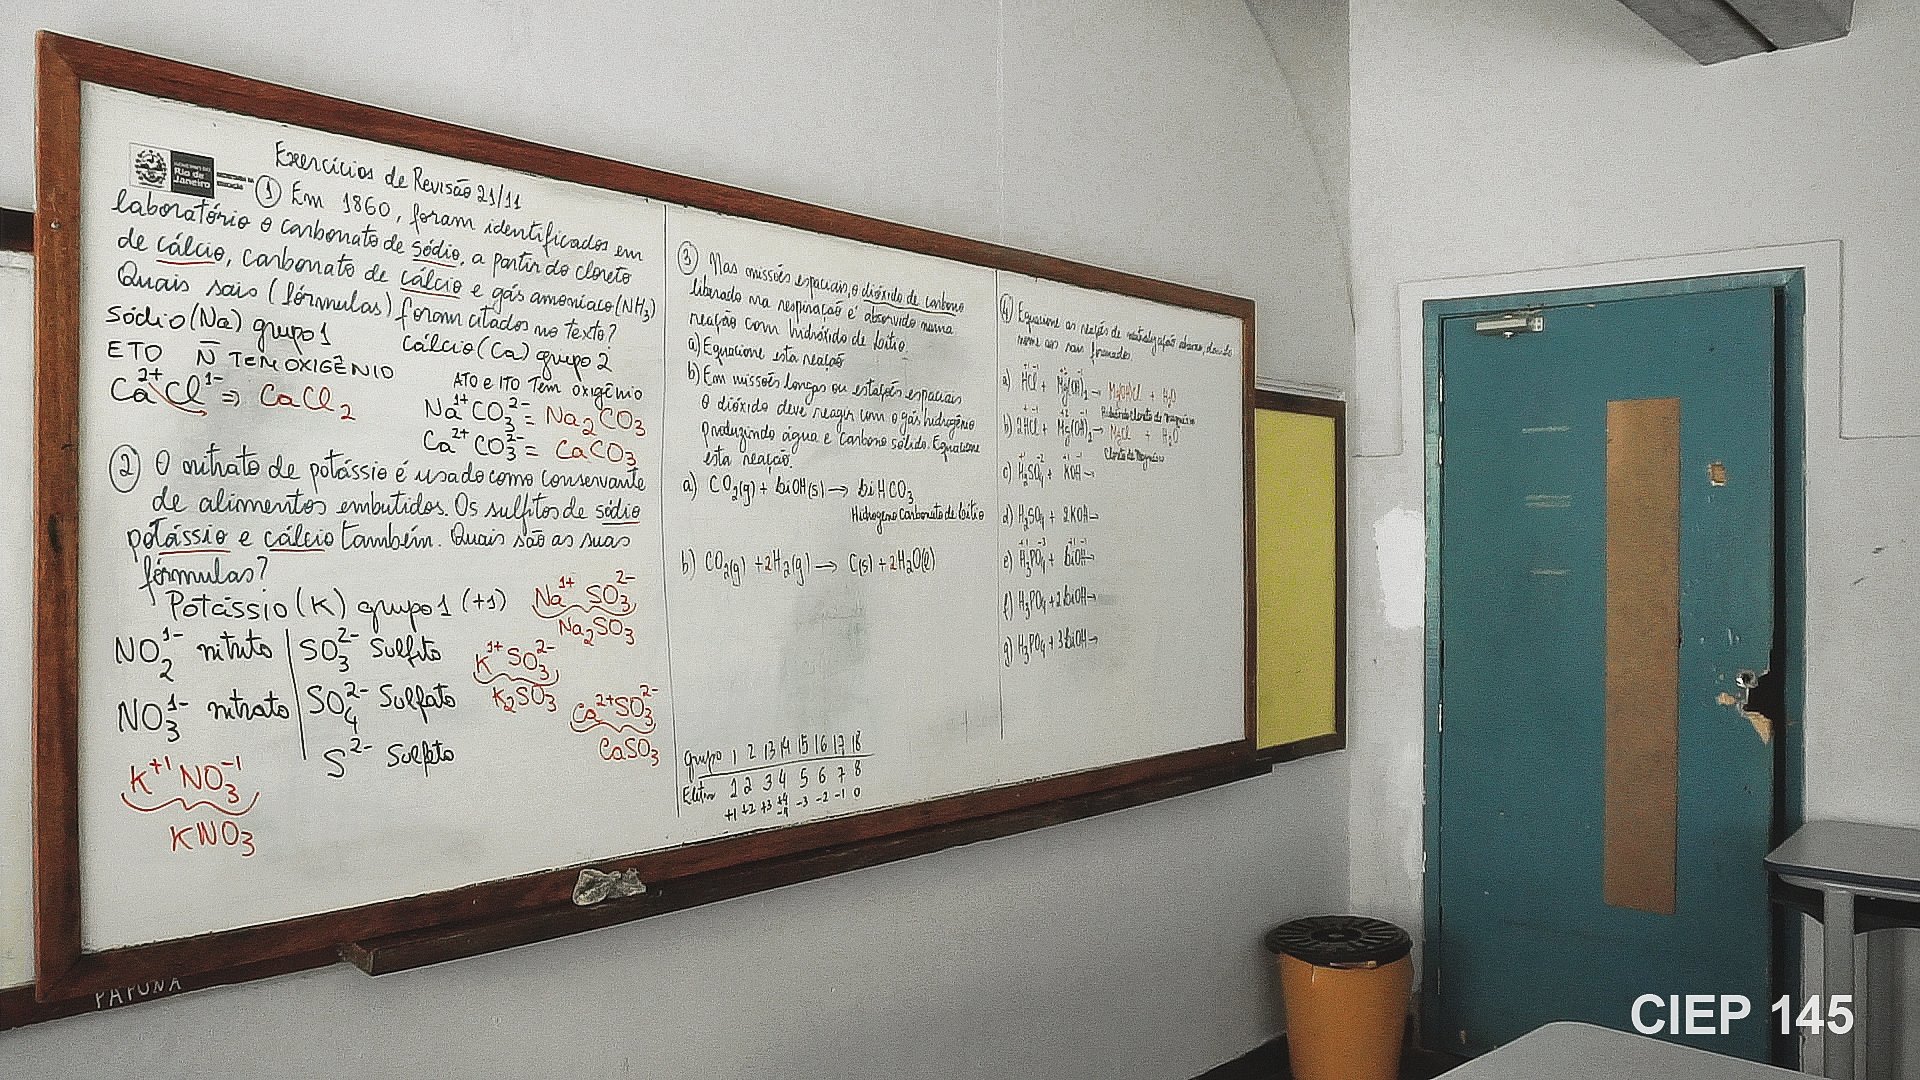 GOVERNO DO
Rio de
Janeiro
Exercícios de Revisão 21/11
① Em 1860, foram identificados em
laboratório o carbonato de sódio, a partir do cloreto
de cálcio, carbonato de cálcio e gás amoníaco (NH3)
Quais sais (fórmulas) foram citados no texto?
Sódio (Na) grupo 1
Cálcio (Ca) grupo 2
ETO N̄ TEM OXIGÊNIO
ATO e ITO Tem oxigênio
Ca2+ Cl1- => CaCl2
Na1+ CO3 2- = Na2CO3
Ca2+ CO3 2- = CaCO3
② O nitrato de potássio é usado como conservante
de alimentos embutidos. Os sulfitos de sódio
potássio e cálcio também. Quais são as suas
fórmulas?
Potássio (K) grupo 1 (+1)
NO2 1- nitrito
NO3 1- nitrato
SO3 2- Sulfito
SO4 2- Sulfato
S2- Sulfeto
Na1+ SO3 2-
Na2SO3
K1+ SO3 2-
K2SO3
Ca2+ SO3 2-
CaSO3
K+1 NO3 -1
KNO3
③ Nas missões espaciais, o dióxido de carbono
liberado na respiração é absorvido numa
reação com hidróxido de lítio.
a) Equacione esta reação
b) Em missões longas ou estações espaciais
O dióxido deve reagir com o gás hidrogênio
produzindo água e carbono sólido. Equacione
esta reação.
a) CO2(g) + LiOH(s) → LiHCO3
Hidrogeno Carbonato de Lítio
b) CO2(g) + 2H2(g) → C(s) + 2H2O(l)
grupo 1 2 13 14 15 16 17 18
1 2 3 4 5 6 7 8
+1 +2 +3 +4 -4 -3 -2 -1 0
④ Equacione as reações de neutralização abaixo, dando
nome aos sais formados.
a) HCl + Mg(OH)2 → Mg(OH)Cl + H2O
b) 2HCl + Mg(OH)2 → MgCl + H2O
Cloreto de Magnésio
c) H2SO4 + KOH →
d) H2SO4 + 2KOH →
e) H3PO4 + LiOH →
f) H3PO4 + 2LiOH →
g) H3PO4 + 3LiOH →
CIEP 145